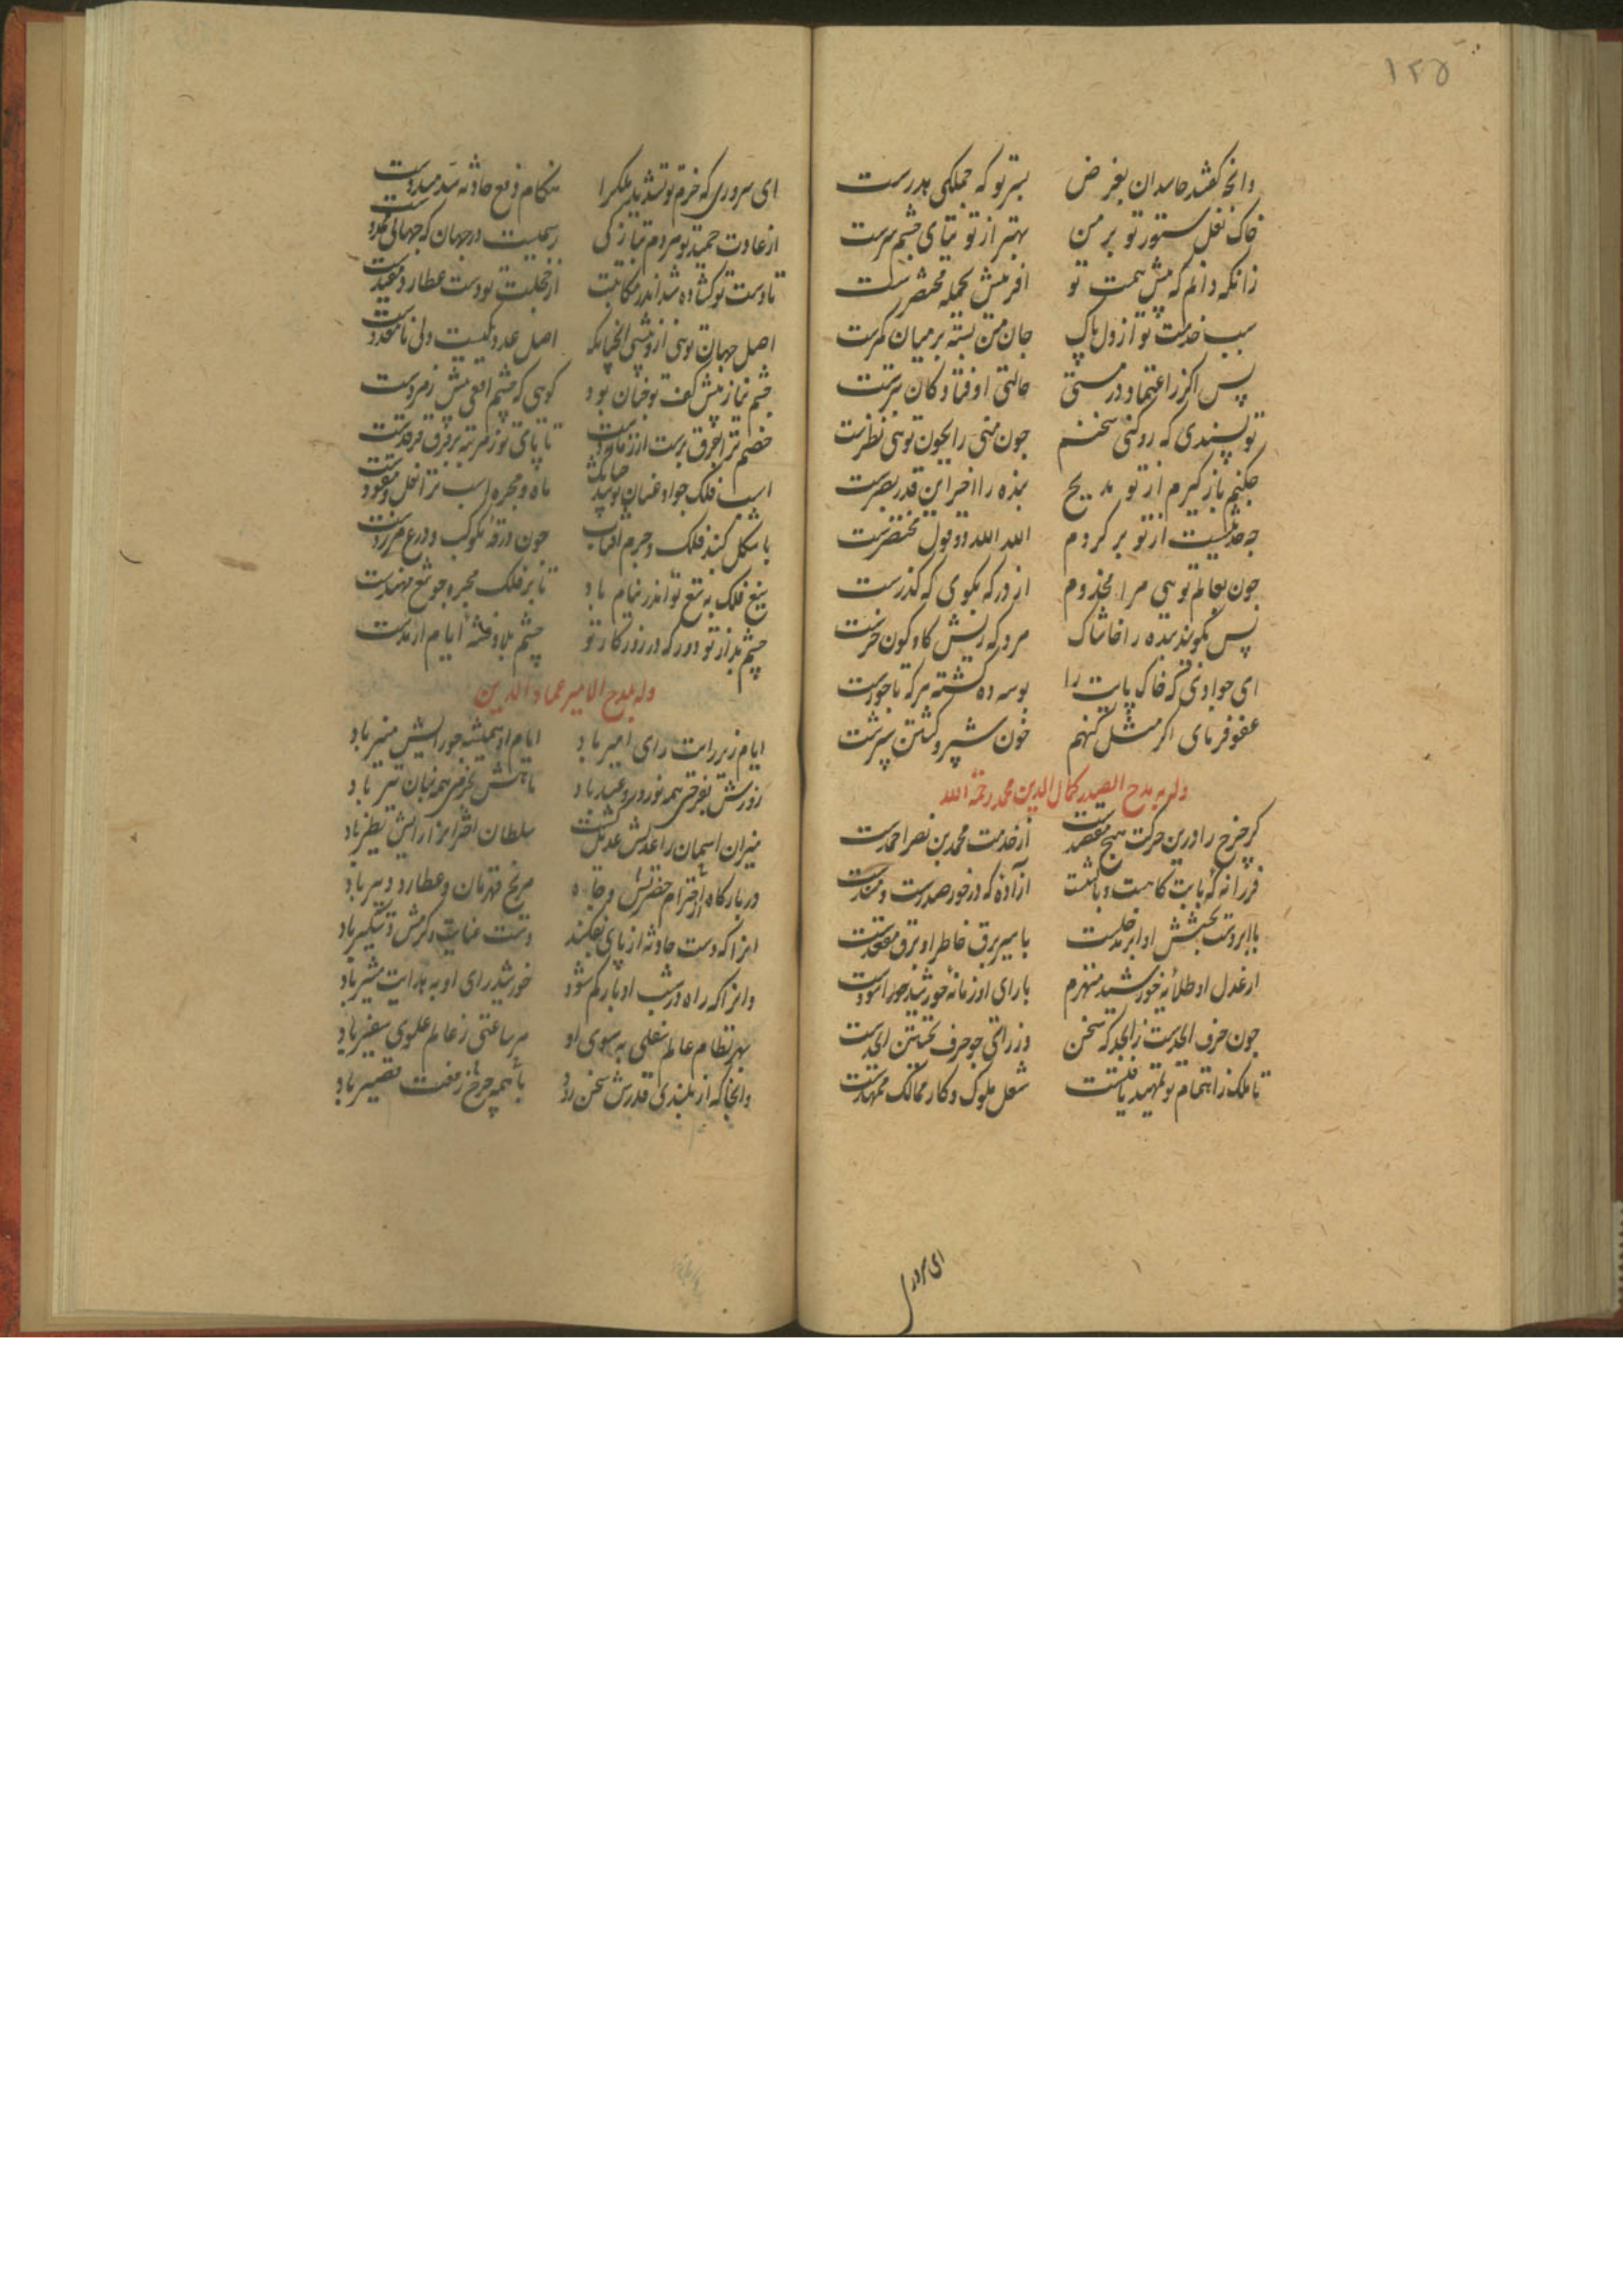 ۱۲۵
وانچه گفتند حاسدان بغرض بسر تو که جملگی هدرست
خاک نعل ستور تو بر من بهتر از توتیای چشم سرست
زانکه دانم که پیش همت تو آفرینش بجمله مختصرست
سبب خدمت تو از دل پاک جان من بسته بر میان کمرست
پس اگر اعتماد در مستی حالتی اوفتاد کان بترست
تو پسندی که رد کنی سخنم چون منی را بچون تویی نظرست
چکنم باز گیرم از تو مدیح بنده را آخر این قدر بصرست
چه حدیثیست از تو برگردم الله الله دو قول مختصرست
چون بعالم تویی مرا مخدوم از در که بگوی که گذرست
پس بگویند بنده را حاشاک مردکه ریش گاو کون خرست
ای جوادی که خاک پایت را بوسه ده گشته هر که تاجورست
عفو فرمای اگر مثل گنهم خون شبیر و کشتن شبرست
وله بمدح الصدر کمال الدین محمد رحمة الله
گر چرخ را درین حرکت هیچ مقصدست از خدمت محمد بن نصر احمدست
فرزانه که بابت گاهست و بالشست آزاده که درخور صدرست و مسندست
با ابر دست بخشش او ابر مدخلیست با سیر برق خاطر او برق مقعدست
از عدل او طلایه خورشید منهزم با رای او زمانه خورشید اسودست
چون حرف ابجدست ز ابجد که سخن وز راستی چو حرف نخستین ابجدست
تا ملک ز اهتمام تو تمهید یافتست شغل ملوک و کار ممالک ممهدست
ای سروری
ای سروری که حزم تو تسدید ملک را هنگام دفع حادثه سد مسددست
از عادت حمید تو مردم بتازگی رسمیست در جهان که جهانی مجددست
تا دست تو گشاده شد اندر مکاتبت از خجلت تو دست عطارد مقیدست
اصل جهان تویی و تو پیشی آنچنانکه اصل عدد یکیست ولی نامعددست
چشم نیاز پیش کف تو چنان بود گویی که چشم افعی پیش زمردست
خصم ترا بفرق برست از زمانه دست تا پای تو ز مرتبه بر فرق فرقدست
اسب فلک جواد عنان تو شد چنانک ماه و مجره اسب ترا نعل و مقودست
با شکل گنبد فلک و جرم آفتاب چون درقه مکوکب و درع مزردست
تیغ فلک به تیغ تو اندر نیام باد تا بر فلک مجره چو تیغ مهندست
چشم بد از تو دور که در روزگار تو چشم بلا و فتنه ایام ارمدست
وله بمدح الامیر عماد الدین
ایام زیر رایت رای امیر باد ایام او همیشه چو رایش منیر باد
روزش بفرخی همه نوروز و عید باد ماهش بخرمی همه نیسان و تیر باد
میزان آسمان را عدلش عدیل گشت سلطان اختران را رایش نظیر باد
در بارگاه از احترام حضرتش و جاه مریخ قهرمان و عطارد دبیر باد
آنرا که دست حادثه از پای بفکند دست عنایت و کرمش دستگیر باد
وآنرا که راه در شب ادبار گم شود خورشید رای او به هدایت مشیر باد
بهر نظام عالم سفلی به سوی او هر ساعتی ز عالم علوی سفیر باد
وانجا که از بلندی قدرش سخن رود با همه چرخ ز رفعت قصیر باد